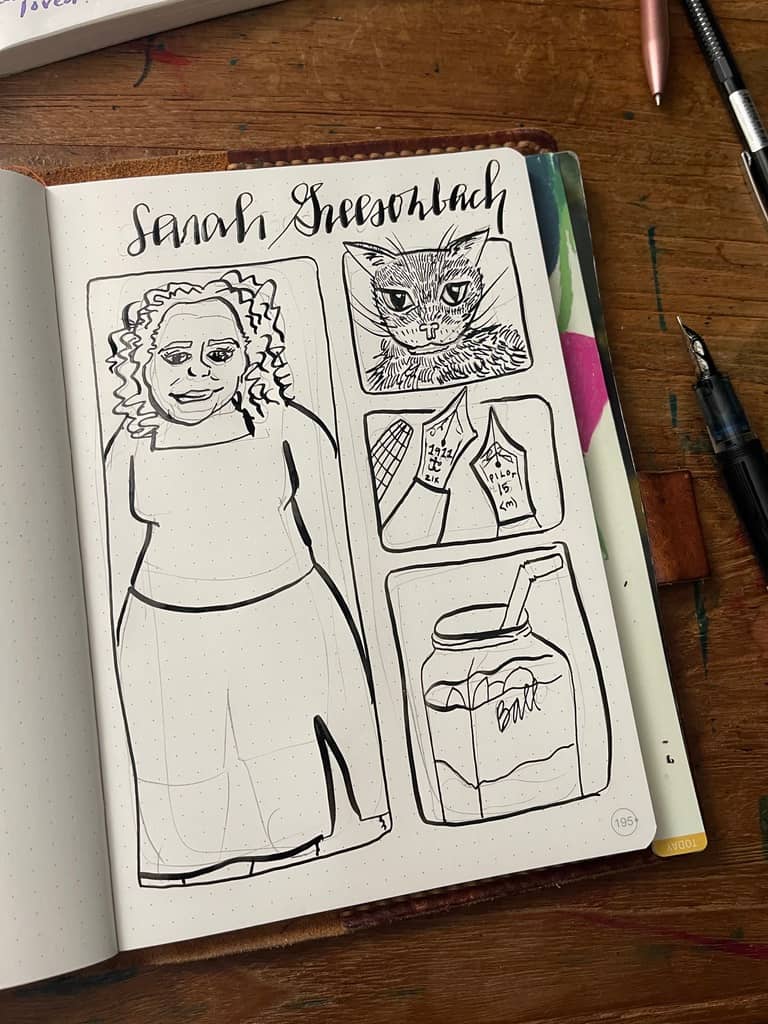 loved!
Sarah Greesonbach
1911
21K
PILOT
15
<M>
Ball
195
TODAY